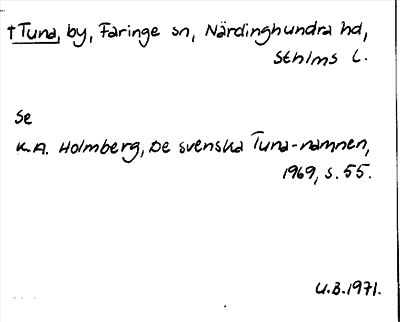 †Tuna, by, Faringe sn, Närdinghundra hd,
Sthlms l.
Se
K.A. Holmberg, De svenska Tuna-namnen,
1969, s. 55.
U.B. 1971.